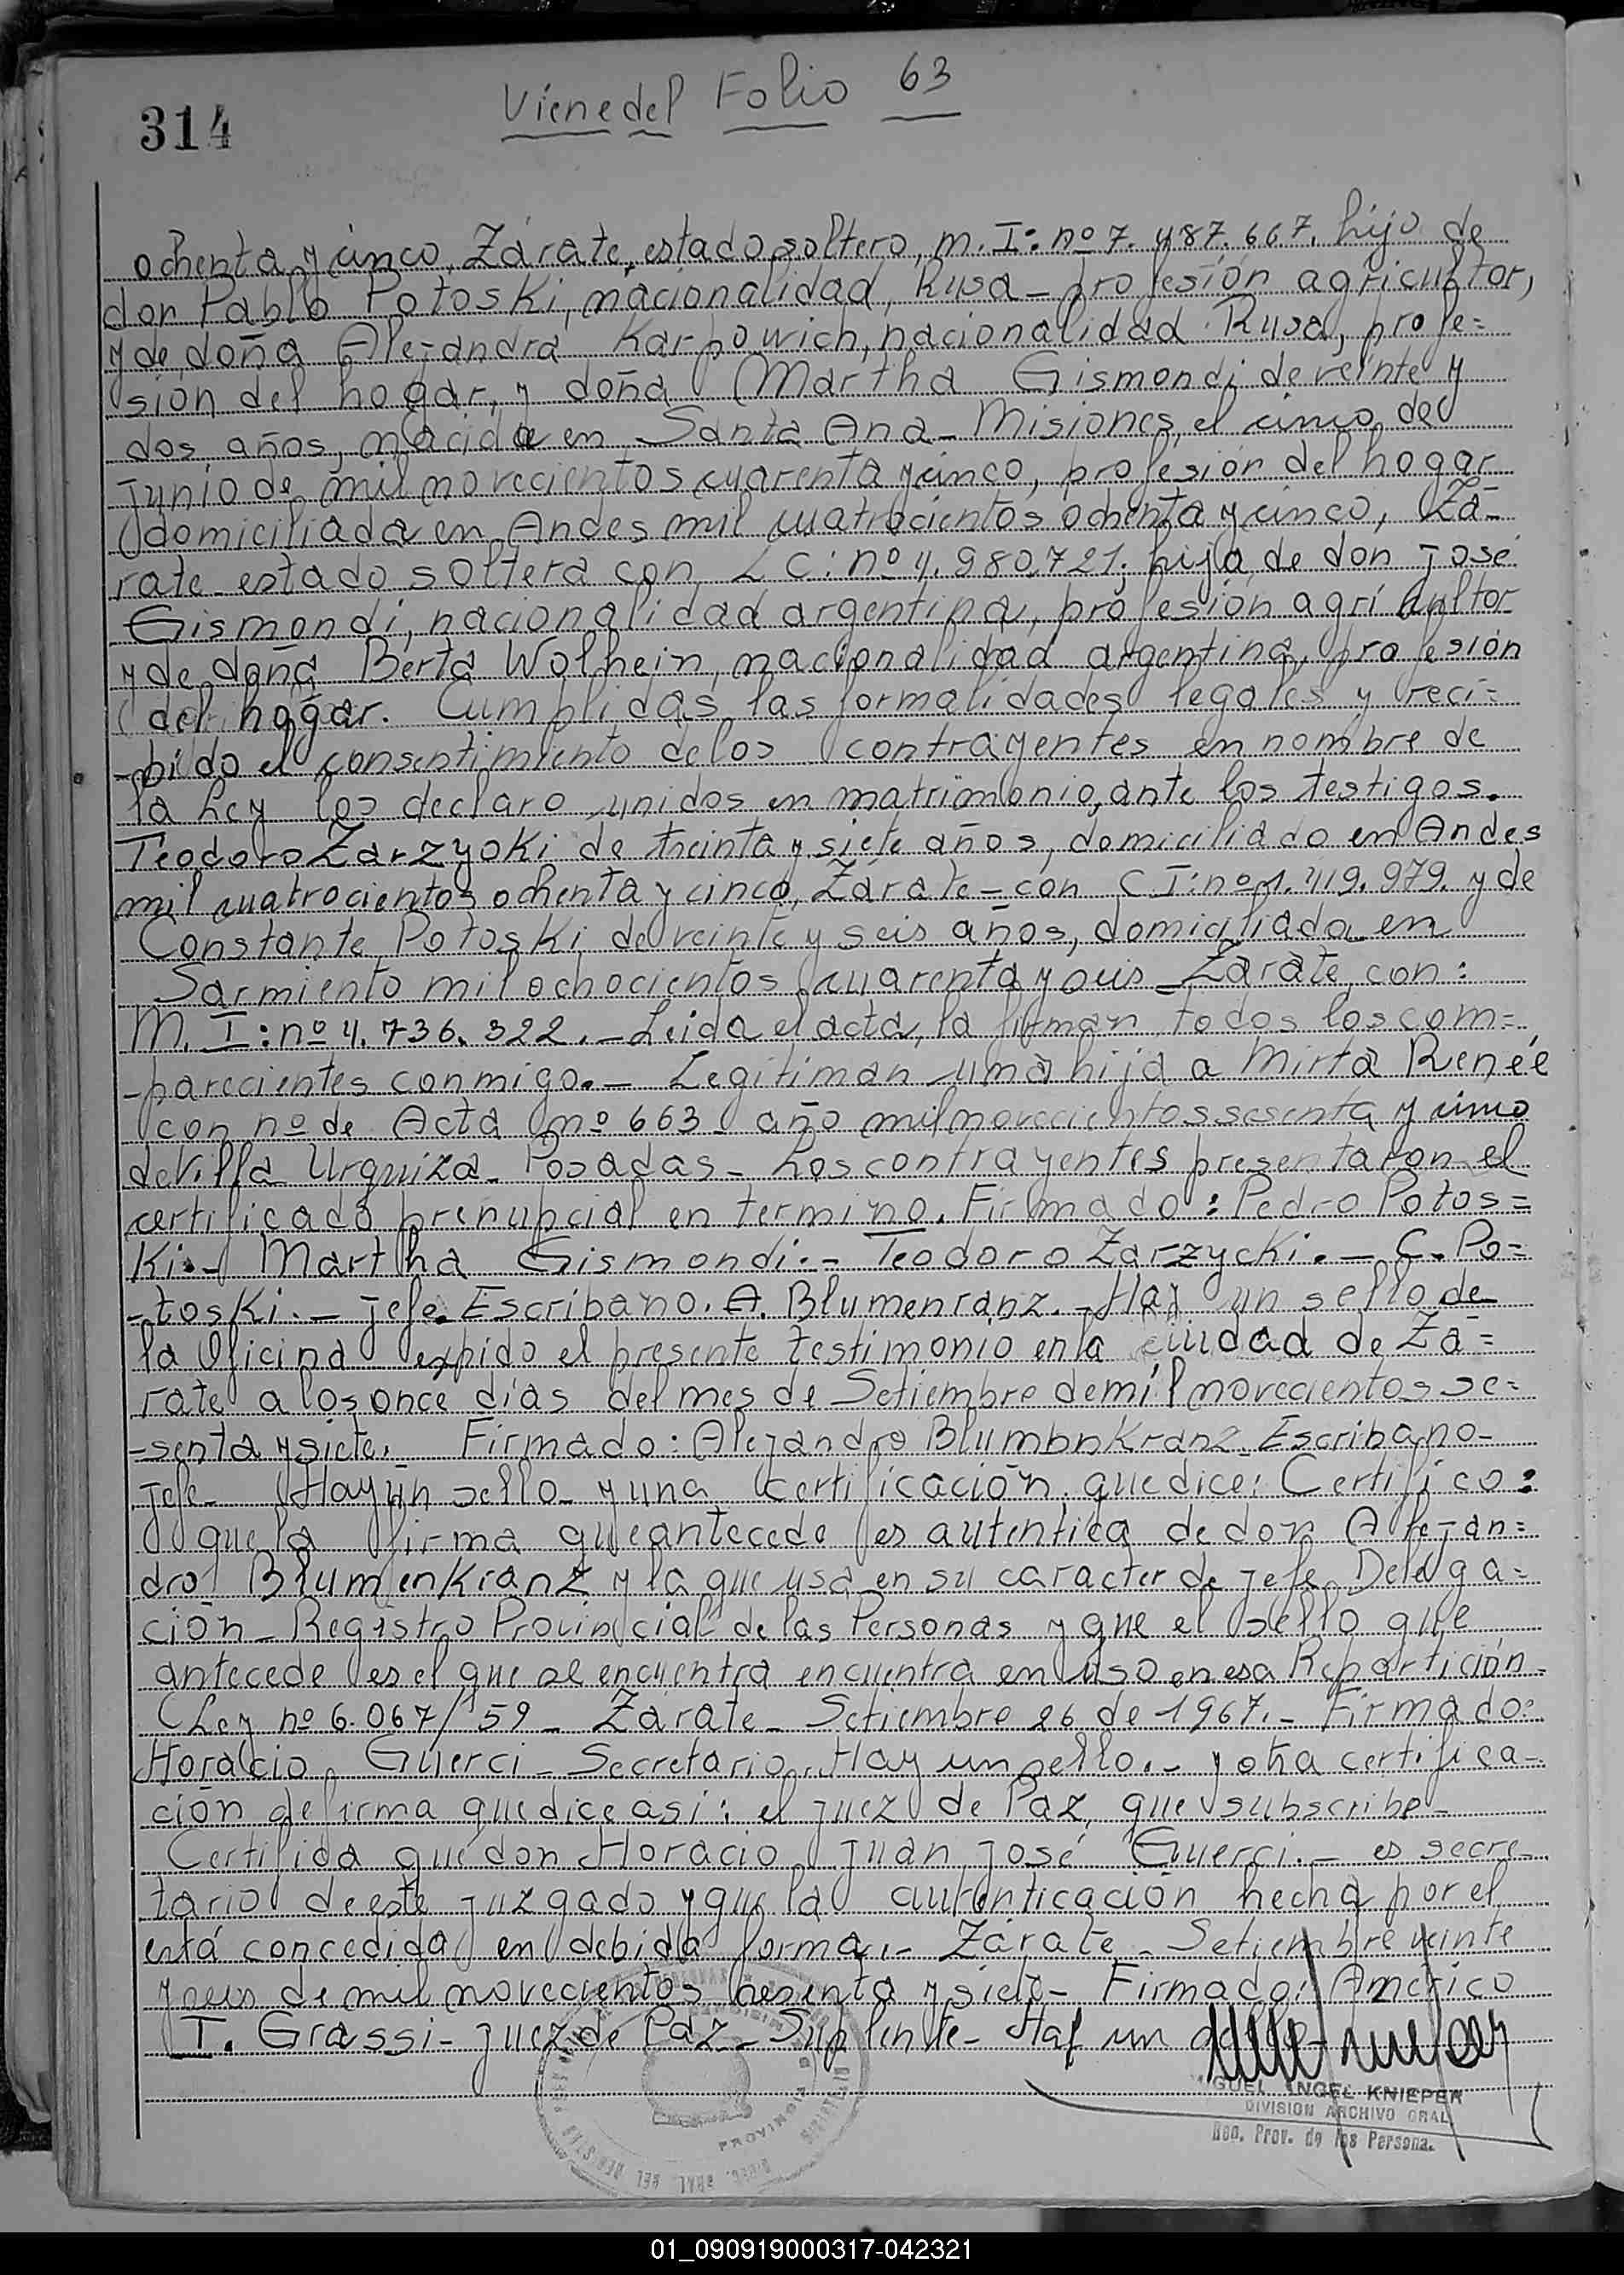 Viene del Folio 63
314
ochenta y cinco, Zárate, estado soltero, M. I: nº 7.487.667. hijo de
don Pablo Potoski, nacionalidad, Rusa - profesión agricultor,
y de doña Alejandra Karpowich, nacionalidad Rusa, profe=
sión del hogar, y doña Martha Gismondi de veinte y
dos años, nacida en Santa Ana - Misiones, el cinco de
junio de mil novecientos cuarenta y cinco, profesión del hogar
domiciliada en Andes mil cuatrocientos ochenta y cinco, Zá-
rate estado soltera con L C: nº 4.980.721; hija de don José
Gismondi, nacionalidad argentina, profesión agricultor
y de doña Berta Wolhein, nacionalidad argentina, profesión
del hogar. Cumplidas las formalidades legales y reci=
-bido el consentimiento de los contrayentes en nombre de
la Ley los declaro unidos en matrimonio, ante los testigos.
Teodoro Zarzyoki de treinta y siete años, domiciliado en Andes
mil cuatrocientos ochenta y cinco, Zárate - con C I: nº 1.419.979. y de
Constante Potoski de veinte y seis años, domiciliado en
Sarmiento mil ochocientos cuarenta y seis - Zárate, con:
M. I: nº 4.736.322. - Leida el acta, la firman todos los com=
-parecientes conmigo. - Legitiman una hija a Mirta Renée
con nº de Acta nº 663 - año mil novecientos sesenta y cinco
de Villa Urquiza - Posadas - Los contrayentes presentaron el
certificado prenupcial en termino. Firmado: Pedro Potos=
Ki. - Martha Gismondi. - Teodoro Zarzycki. - C. Po=
-toski. - Jefe. Escribano. A. Blumenranz. - Hay un sello de
la Oficina expido el presente testimonio en la ciudad de Zá=
rate a los once días del mes de Setiembre de mil novecientos se=
-senta y siete. Firmado: Alejandro Blumbnkranz. Escribano-
Jefe - Hay un sello - y una certificación que dice: Certifico:
que la firma que antecede es autentica de don Alejan=
dro Blumenkranz y la que usa en su caracter de jefe Delega=
ción - Registro Provincial de las Personas y que el sello que
antecede es el que se encuentra encuentra en uso en esa Repartición-
(Ley nº 6.067/59 - Zárate - Setiembre 26 de 1967. - Firmado:
Horacio Guerci - Secretario. Hay un sello. - y otra certifica-
ción de firma que dice así: el juez de Paz, que subscribe-
Certifida que don Horacio Juan José Guerci. - es secre-
tario de este juzgado y que la autenticación hecha por el
está concedida en debida forma. - Zárate - Setiembre veinte
y seis de mil novecientos sesenta y siete - Firmado: Américo
I. Grassi - juez de Paz - Suplente - Hay un sello
MIGUEL ANGEL KNIEPER
DIVISION ARCHIVO GRAL
Reg. Prov. de las Persona.
PROVINCIA
01_090919000317-042321